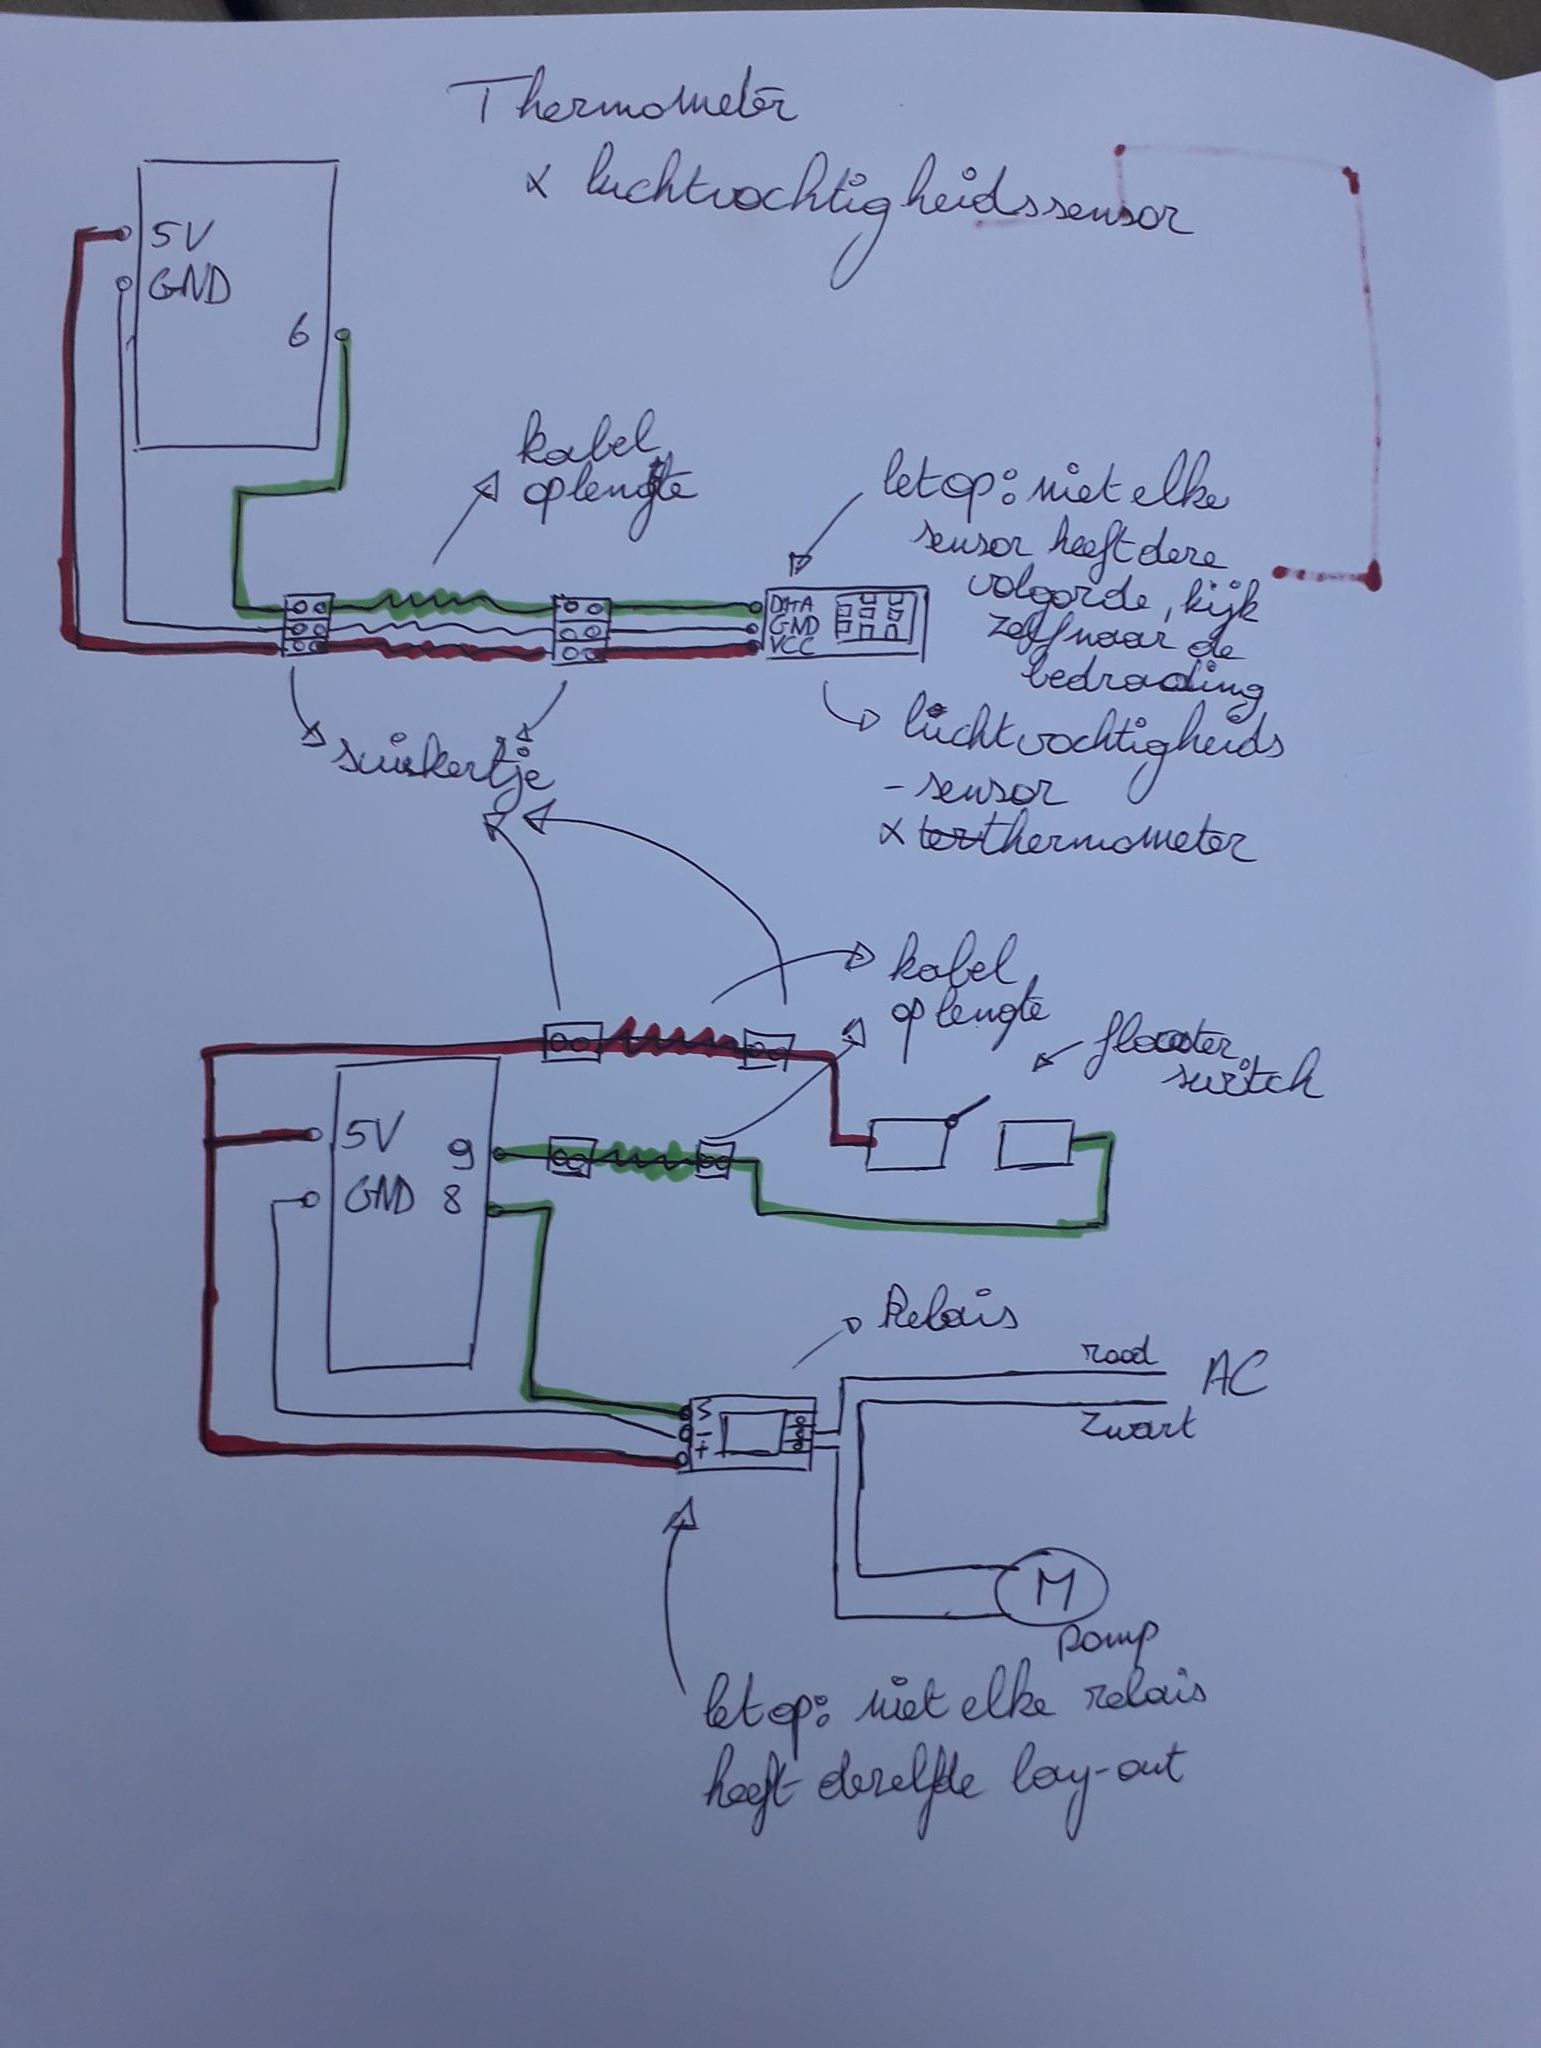 Thermometer
& luchtvochtigheidssensor
5V
GND
6
kabel
op lengte
let op: niet elke
sensor heeft deze
volgorde, kijk
zelf naar de
bedrading
DATA
GND
VCC
luchtvochtigheids
- sensor
& ter thermometer
suikertje
kabel
op lengte
floater
switch
5V
GND
9
8
Relais
rood
AC
zwart
S
-
+
M
Pomp
let op: niet elke relais
heeft dezelfde lay-out